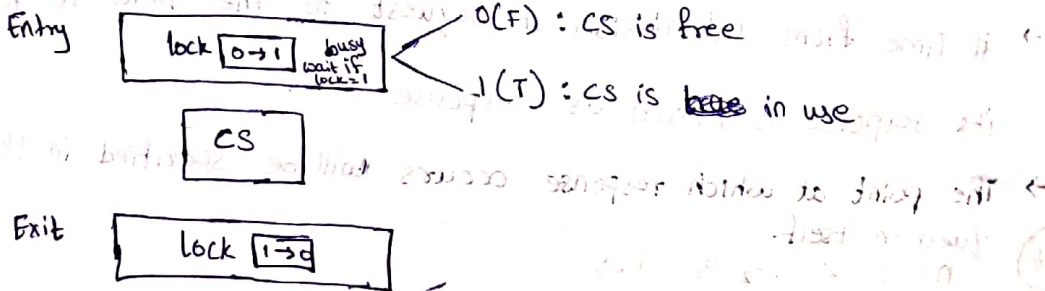 Entry
lock 0→1 busy
wait if
lock=1
0(F) : CS is free
1(T) : CS is in use
CS
Exit
lock 1→0